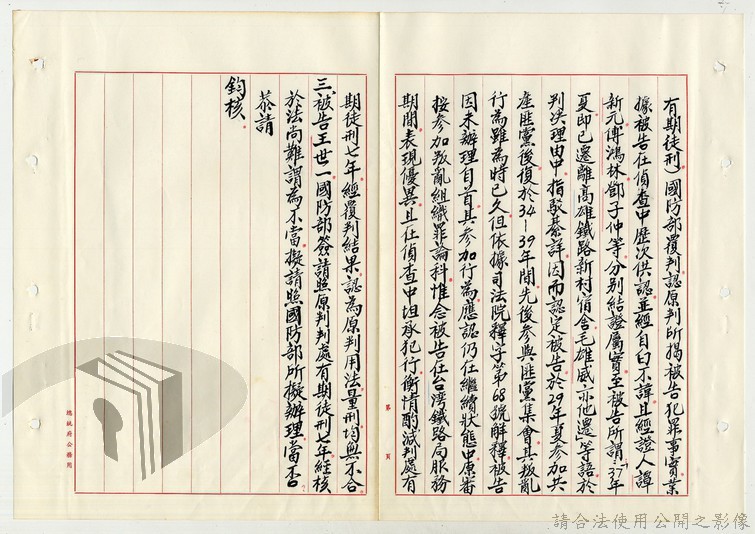 有期徒刑)國防部覆判認原判所揭被告犯罪事實業
據被告在偵查中歷次供認並經自白不諱且經證人譚
新元傅鴻林鄧子仲等分別結證屬實至被告所謂「37年
夏即已遷離高雄鐵路新村宿舍毛雄威亦他遷」等語於
判決理由中指駁綦詳因而認定被告於29年夏參加共
產匪黨後復於34—39年間先後參與匪黨集會其叛亂
行為雖為時已久但依據司法院釋字第68號解釋被告
因未辦理自首其參加行為應認仍在繼續狀態中原審
按參加叛亂組織罪論科惟念被告在台灣鐵路局服務
期間表現優異且在偵查中坦承犯行衡情酌減判處有
期徒刑七年經覆判結果認為原判用法量刑均無不合
三、被告王世一國防部簽請照原判判處有期徒刑七年經核
於法尚難謂為不當擬請照國防部所擬辦理當否
恭請
鈞核
第 頁
總統府公務用
請合法使用公開之影像